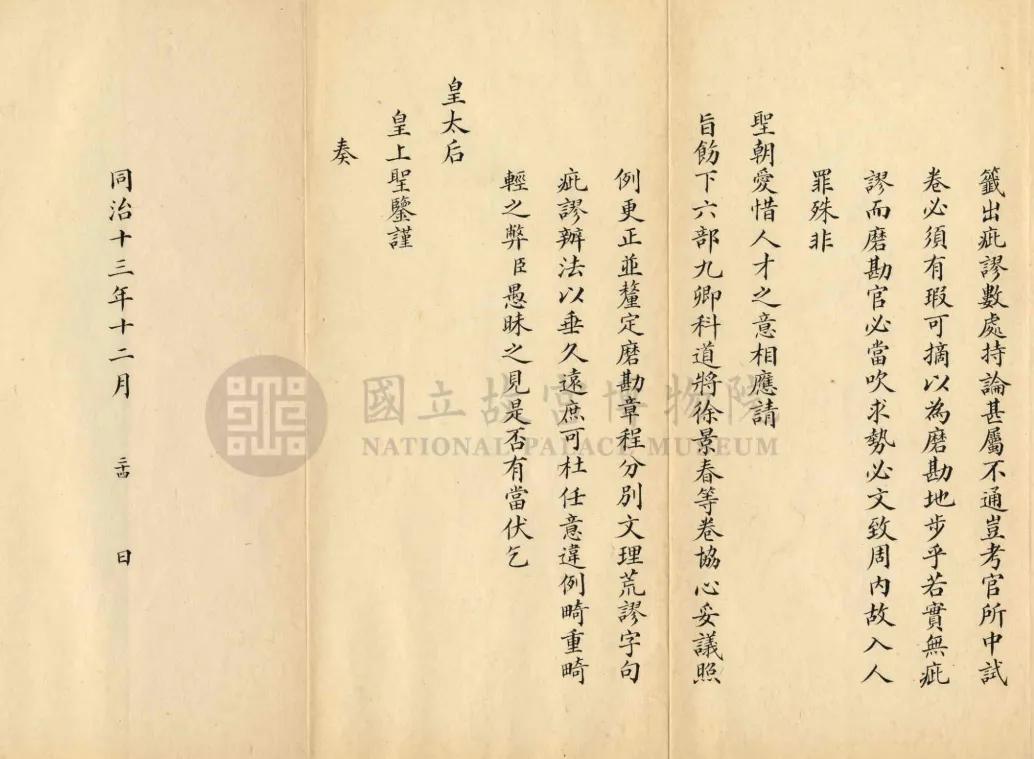 籤出疵謬數處持論甚屬不通豈考官所中試
卷必須有瑕可摘以為磨勘地步乎若實無疵
謬而磨勘官必當吹求勢必文致周內故入人
罪殊非
聖朝愛惜人才之意相應請
旨飭下六部九卿科道將徐景春等卷協心妥議照
例更正並釐定磨勘章程分別文理荒謬字句
疵謬辦法以垂久遠庶可杜任意違例畸重畸
輕之弊臣愚昧之見是否有當伏乞
皇太后
皇上聖鑒謹
奏
同治十三年十二月 日
國立故宮博物院
NATIONAL PALACE MUSEUM